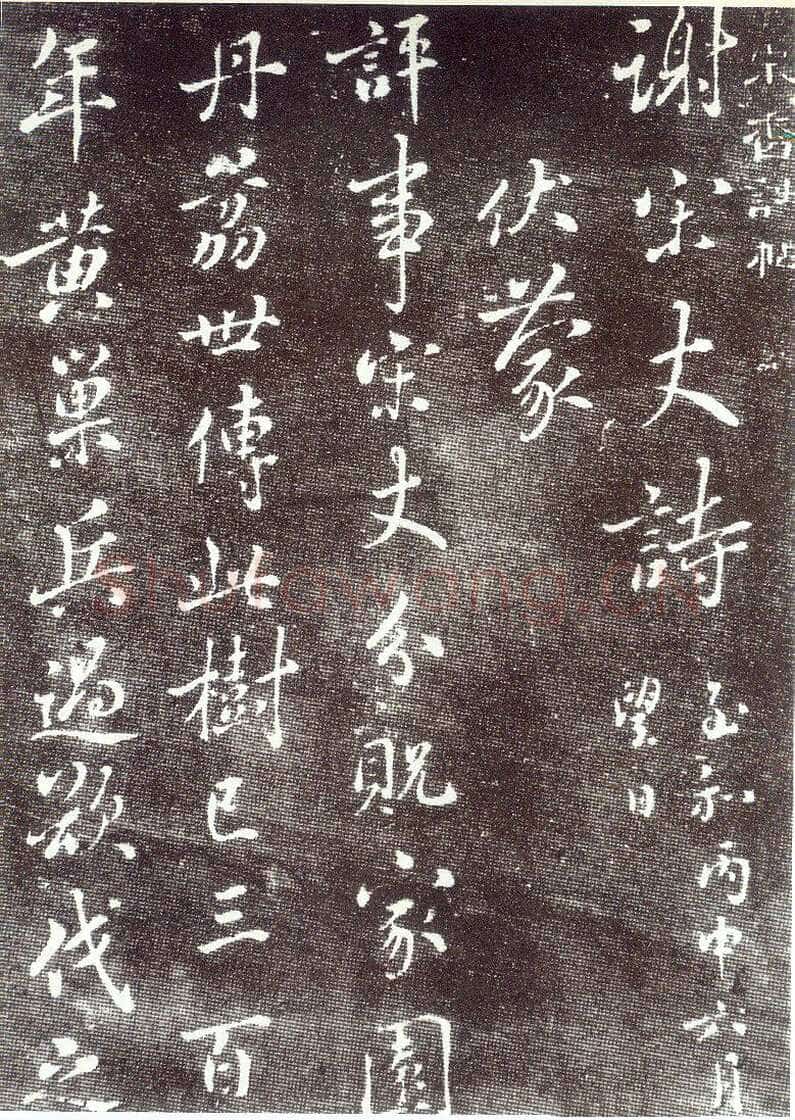 宋香詩帖
謝宋丈詩 至和丙申六月
望日
伏蒙
評事宋丈分貺家園
丹荔世傳此樹已三百
年黄巢兵過欲伐之
shufawang.CN